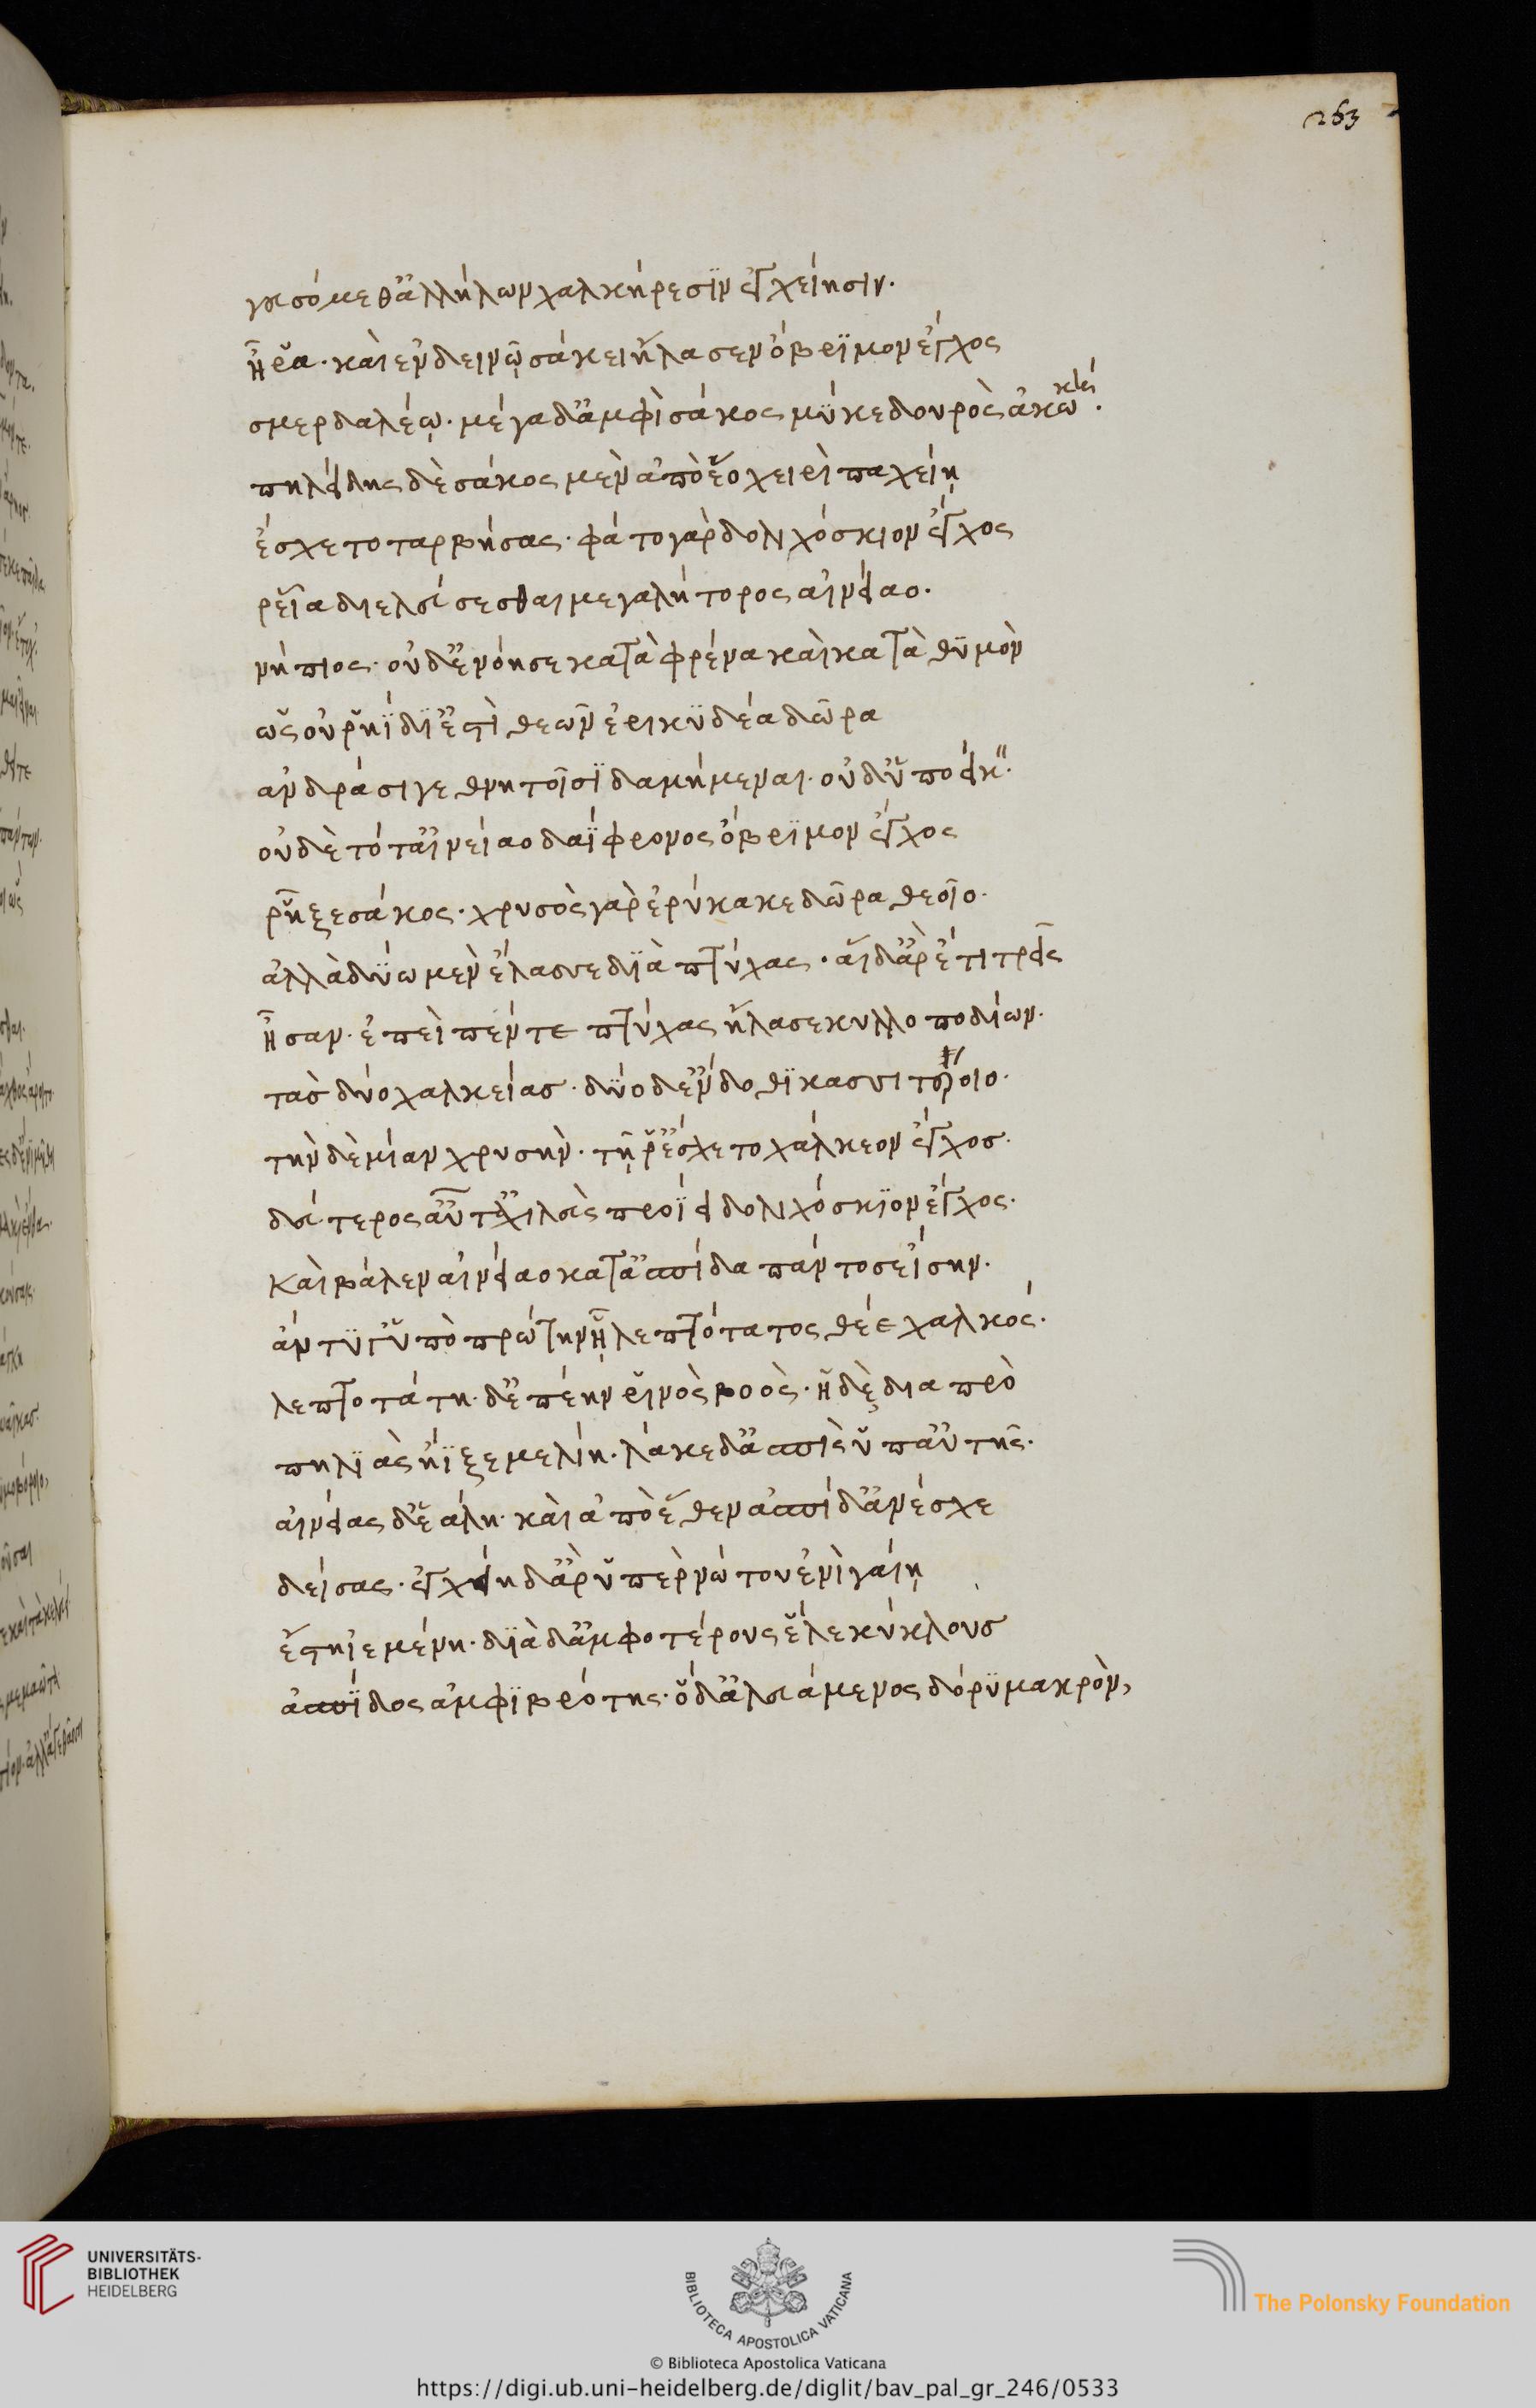 263
γευσόμεθ' ἀλλήλων χαλκήρεσϊν ἐγχείησιν.
ἦ ῥα· καὶ ἐν δεινῷ σάκει ἤλασεν ὄβρϊμον ἔγχος
σμερδαλέω· μέγα δ' ἀμφὶ σάκος μύκε δουρὸς ἀκωκῆ.
πηλείδης δὲ σάκος μὲν ἀπὸ ἕο χειρὶ παχείῃ
ἔσχετο ταρβήσας· φάτο γὰρ δολιχόσκιον ἔγχος
ῥεῖα διελεύσεσθαι μεγαλήτορος αἰνείαο.
νήπιος· οὐδ' ἐνόησε κατὰ φρένα καὶ κατὰ θϋμὸν
ὡς οὐ ῥηΐδϊ' ἐστὶ θεῶν ἐρικϋδέα δῶρα
ἀνδράσι γε θνητοῖσϊ δαμήμεναι· οὐδ' ὑποείκ".
οὐδὲ τότ' αἰνείαο δαΐφρονος ὄβρϊμον ἔγχος
ῥῆξε σάκος· χρυσὸς γὰρ ἐρύκακε δῶρα θεοῖο.
ἀλλὰ δύω μὲν ἔλασσε δϊὰ πτύχας· αἱ δ' ἄρ' ἔτι τρεῖς
ἦσαν· ἐπεὶ πέντε πτύχας ἤλασε κυλλοποδίων.
τὰς δύο χαλκείας· δύο δ' ἔνδοθϊ κασσιτέροιο.
τὴν δὲ μίαν χρυσὴν· τῇ ῥ' ἔσχετο χάλκεον ἔγχος.
δεύτερος αὖτ' ἀχιλεὺς προΐει δολιχόσκϊον ἔγχος.
καὶ βάλεν αἰνείαο κατ' ἀσπίδα πάντοσ' ἐΐσην.
ἄντϋγ' ὑπὸ πρώτην ᾗ λεπτότατος θέε χαλκός.
λεπτοτάτη· δ' ἐπέην ῥινὸς βοὸς· ἡ δὲ δια πρὸ
πηλϊὰς ἤϊξε μελίη· λάκε δ' ἀσπὶς ὑπ' αὐτῆς.
αἰνείας δ' ἐάλη· καὶ ἀπὸ ἕθεν ἀσπίδ' ἀνέσχε
δείσας· ἐγχείη δ' ἄρ' ὑπὲρ νώτου ἐνὶ γαίῃ
ἔστη ἱεμένη· δϊὰ δ' ἀμφοτέρους ἕλε κύκλους
ἀσπίδος ἀμφϊβρότης· ὁ δ' ἀλευάμενος δόρϋ μακρὸν,
UNIVERSITÄTS-
BIBLIOTHEK
HEIDELBERG
BIBLIOTECA APOSTOLICA VATICANA
The Polonsky Foundation
© Biblioteca Apostolica Vaticana
https://digi.ub.uni-heidelberg.de/diglit/bav_pal_gr_246/0533